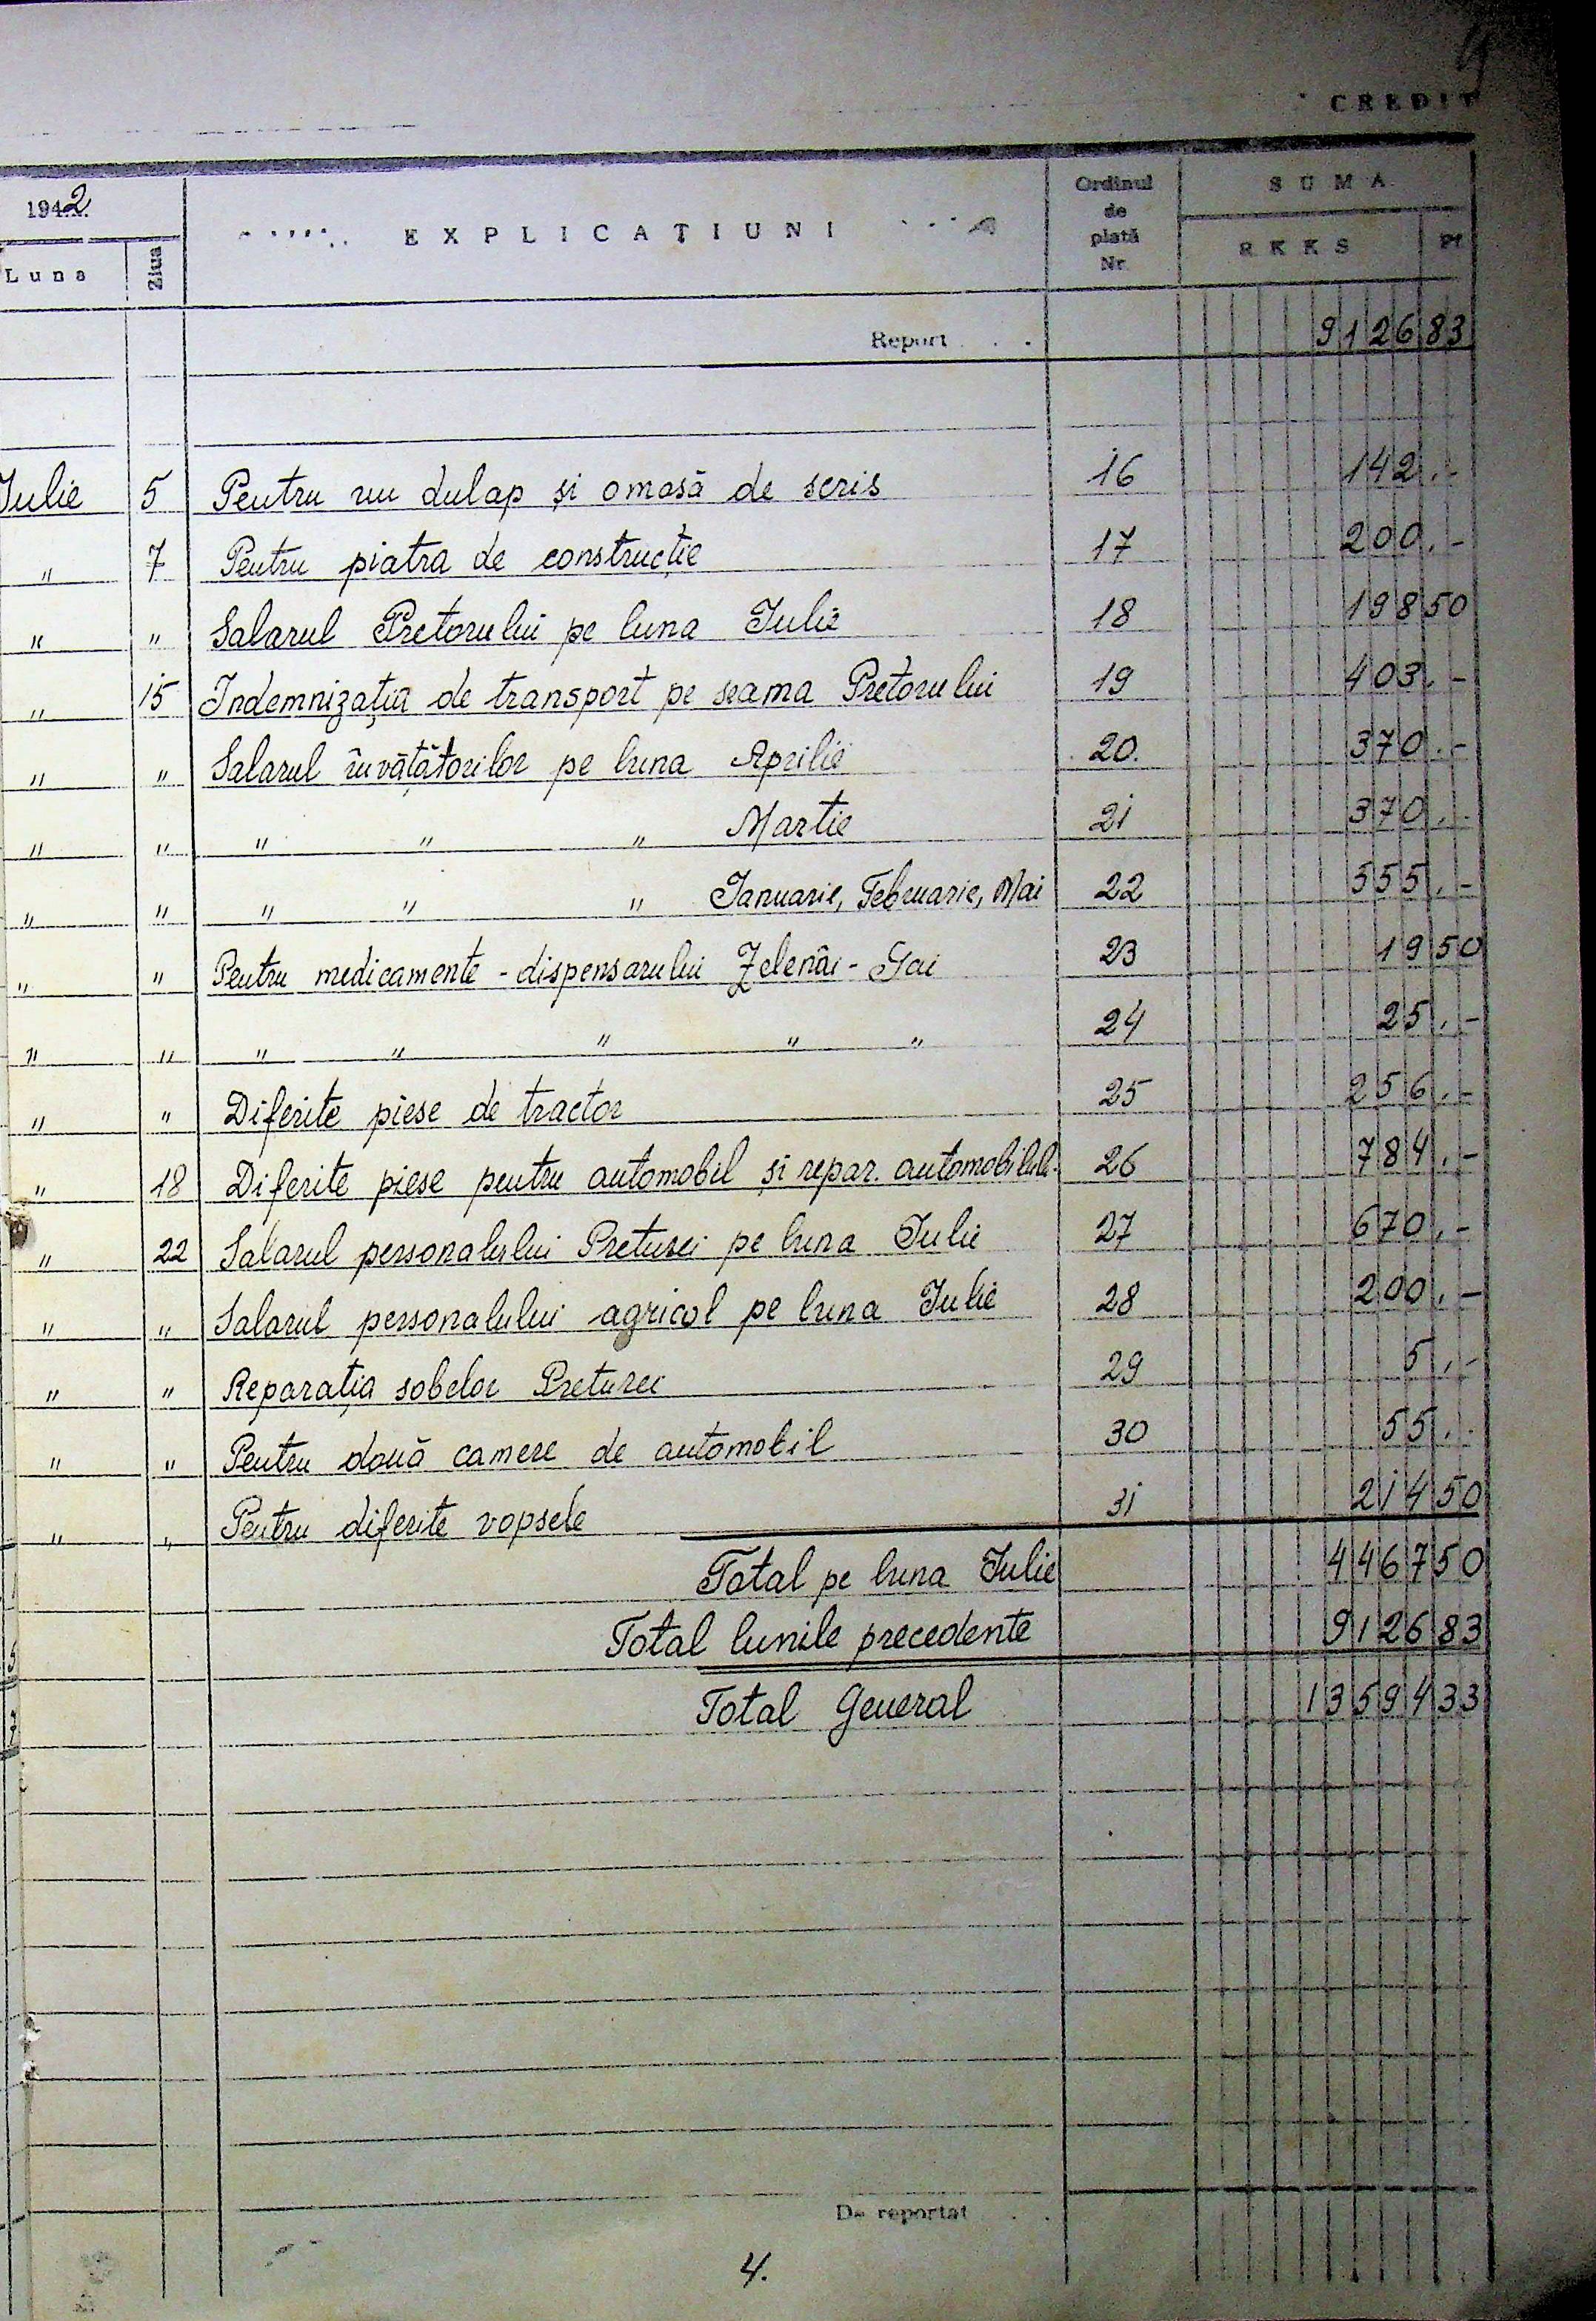 9
CREDIT
1942 EXPLICAȚIUNI Ordinul de plată Nr. SUMA
Luna Ziua RKKS Pf
Report . . 9126 83
Iulie 5 Pentru un dulap și o masă de scris 16 142.-
" 7 Pentru piatra de construcție 17 200.-
" " Salarul Pretorului pe luna Iulie 18 198 50
" 15 Indemnizația de transport pe seama Pretorului 19 403.-
" " Salarul învățătorilor pe luna Aprilie 20. 370.-
" " " " " Martie 21 370..
" " " " " Ianuarie, Februarie, Mai 22 555.-
" " Pentru medicamente - dispensarului Zelenâi - Gai 23 19 50
" " " " " " " 24 25.-
" " Diferite piese de tractor 25 256.-
" 18 Diferite piese pentru automobil și repar. automobilul. 26 784.-
" 22 Salarul personalului Preturei pe luna Iulie 27 670.-
" " Salarul personalului agricol pe luna Iulie 28 200.-
" " Reparația sobelor Preturei 29 5.-
" " Pentru două camere de automobil 30 55..
" " Pentru diferite vopsele 31 214 50
Total pe luna Iulie 4467 50
Total lunile precedente 9126 83
Total General 13594 33
De reportat . .
4.